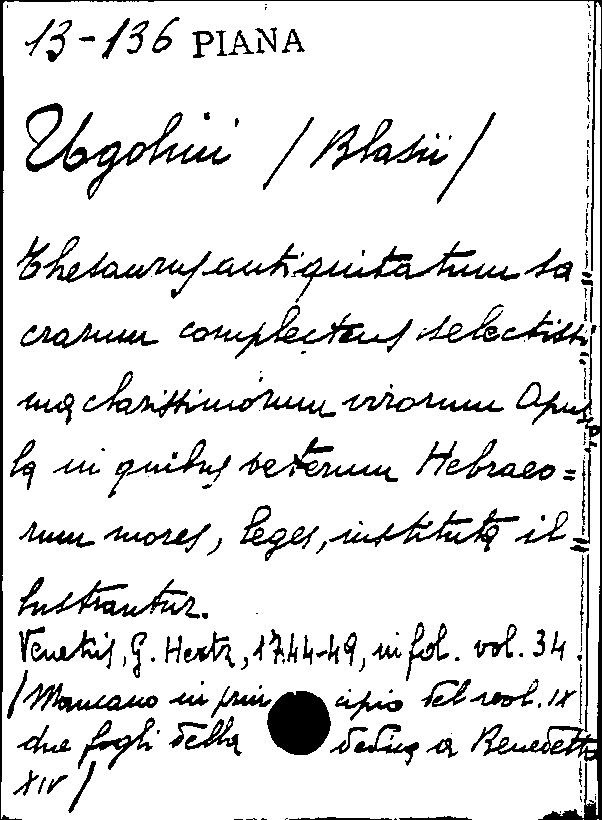 13-136 PIANA
Ugolini /Blasii/
Thesaurus antiquitatum sa
crarum complectens selectissi
ma clarissimorum virorum Opusc
la in quibus veterum Hebraeo=
rum mores, leges, instituta il=
lustrantur.
Venetiis, G. Hertz, 1744-49, in fol. vol. 34.
/Mancano in principio del vol. IX
due fogli della dedica a Benedetto
XIV/